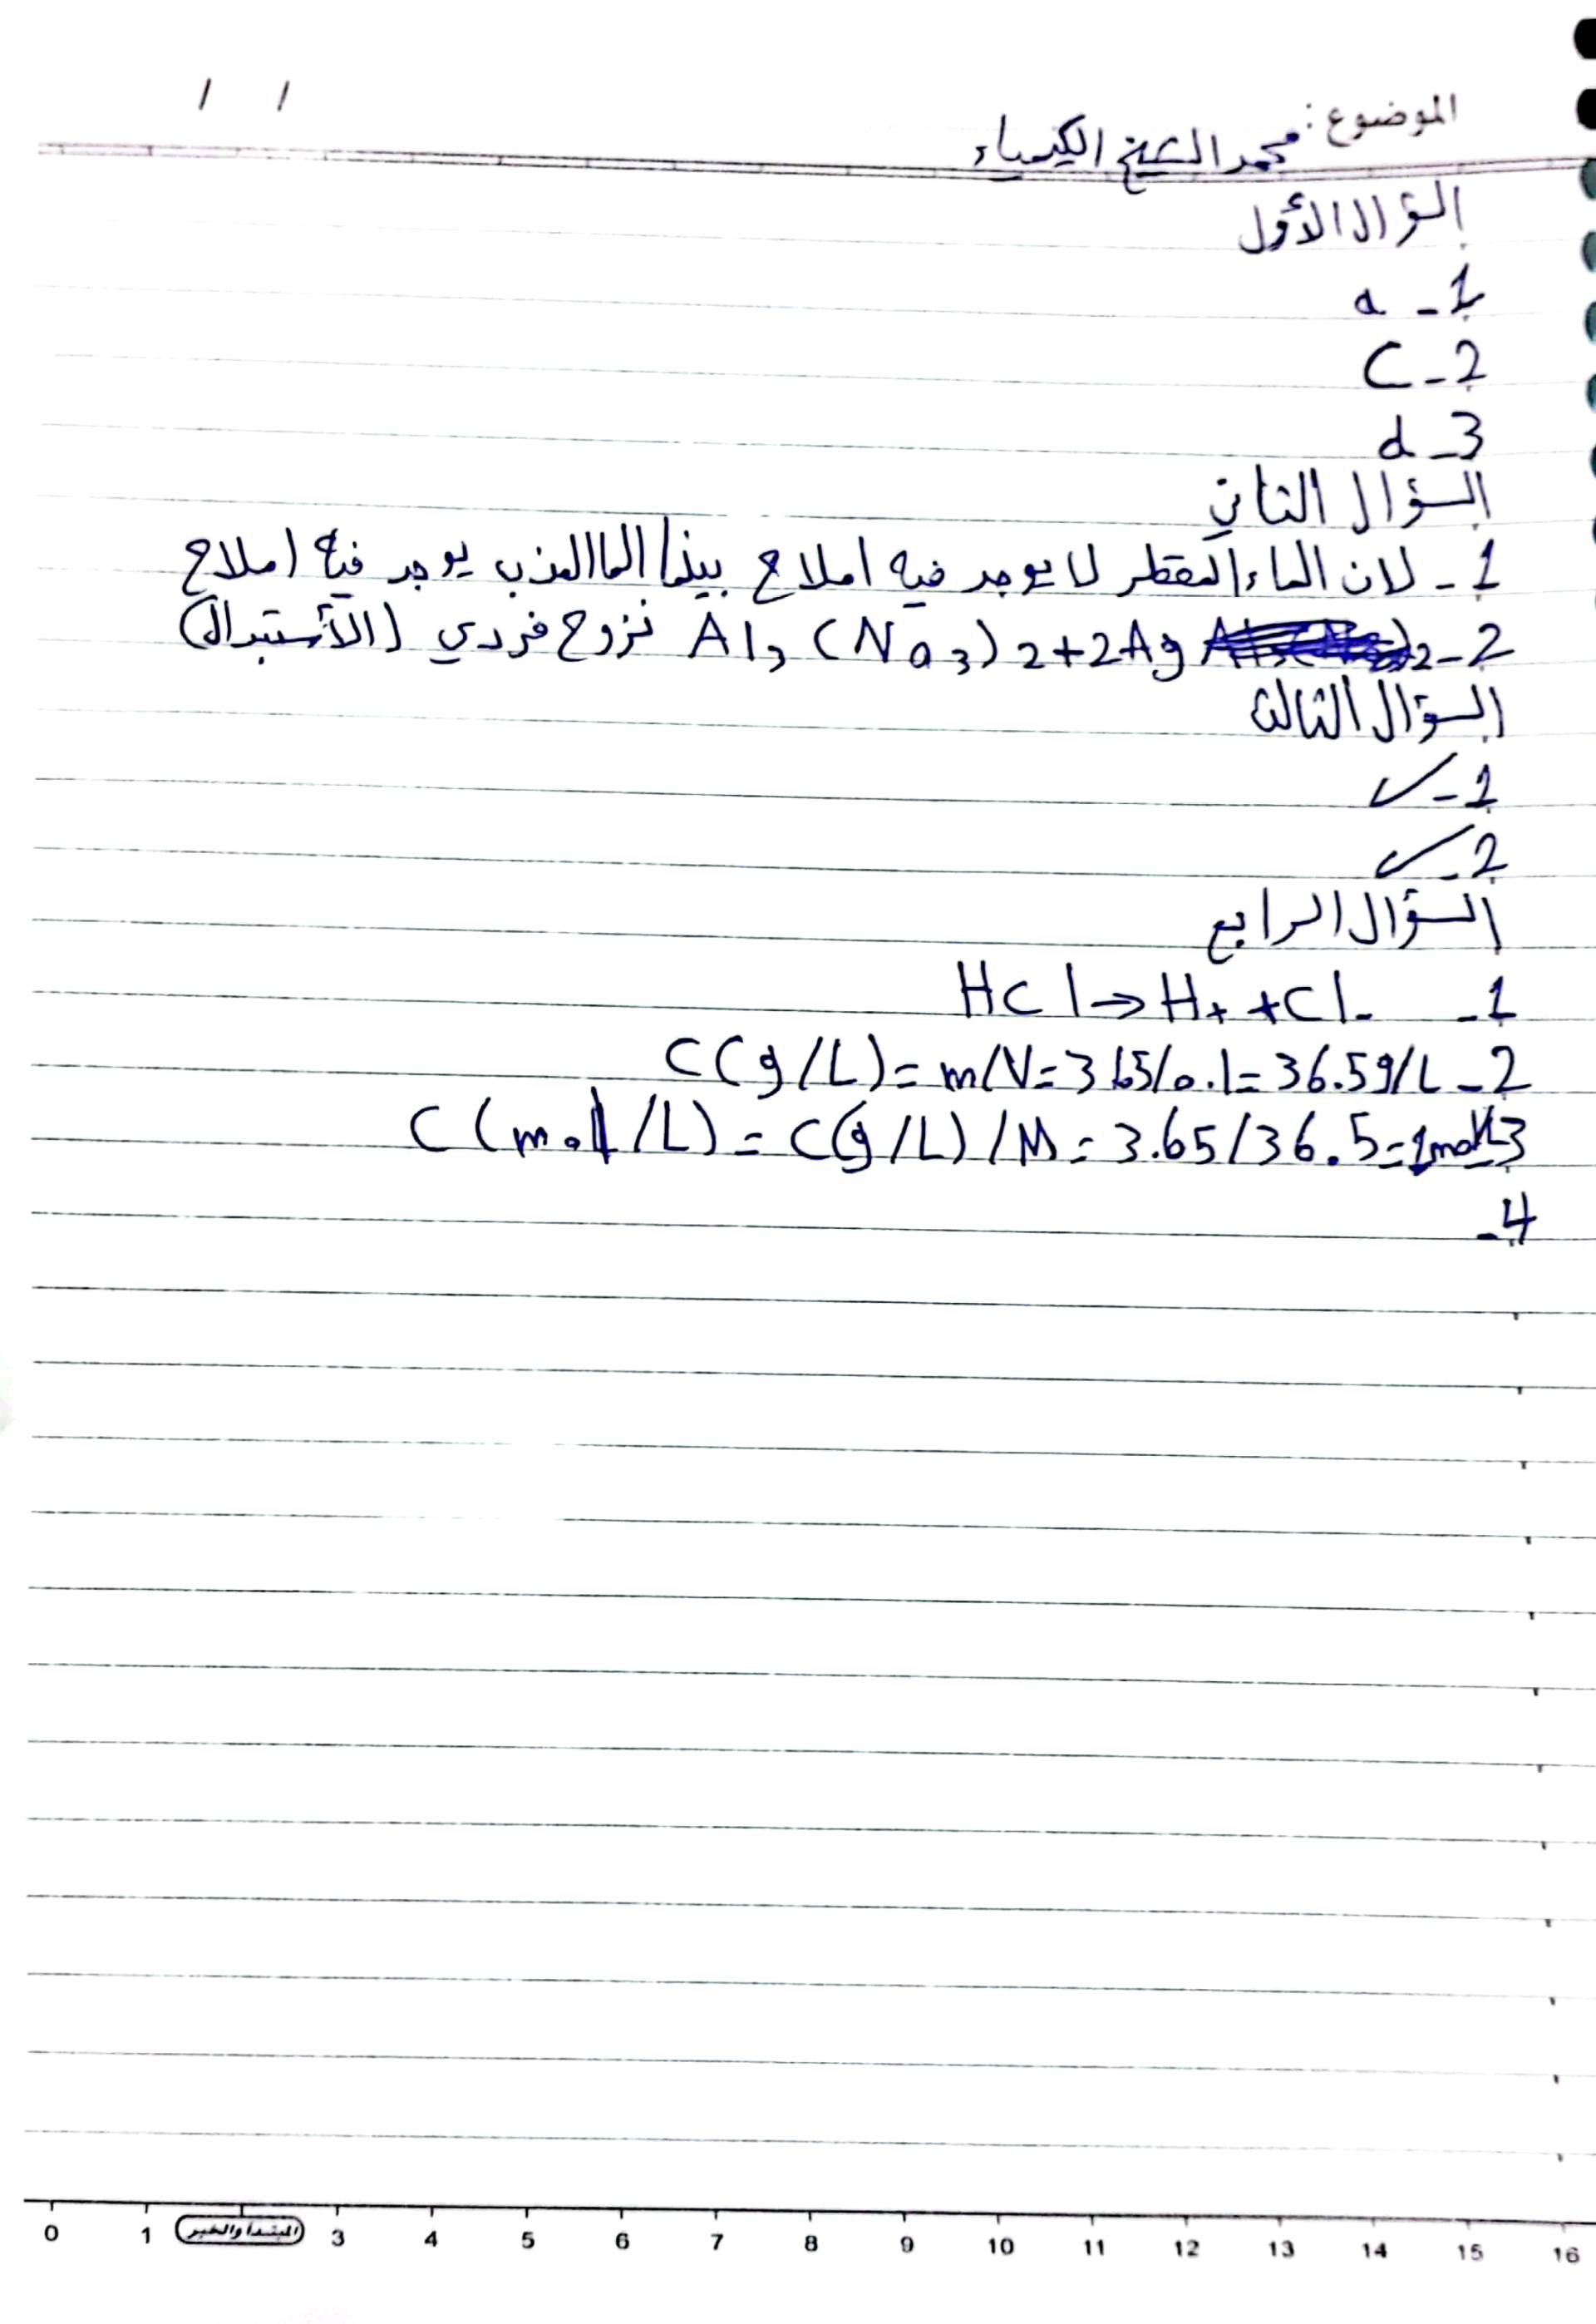 / /
الموضوع: محمد الشيخ الكيمياء
السؤال الأول
1 - a
2 - C
3 - d
السؤال الثاني
1 - لان الماء المقطر لا يوجد فيه املاح بينما الما العذب يوجد فيه املاح
2 - Al3 (No3)2+2Ag تزوج فردي (الأستبدال)
السؤال الثالث
1 - ✓
2 - ✓
السؤال الرابع
1 - HCl → H+ +Cl-
2 - C(g/L)=m/V=3.65/0.1=36.5g/L
3 - C(mol/L)=C(g/L)/M=3.65/36.5=1mol/L
4 -
0 1 المبتدأ والخبر 3 4 5 6 7 8 9 10 11 12 13 14 15 16